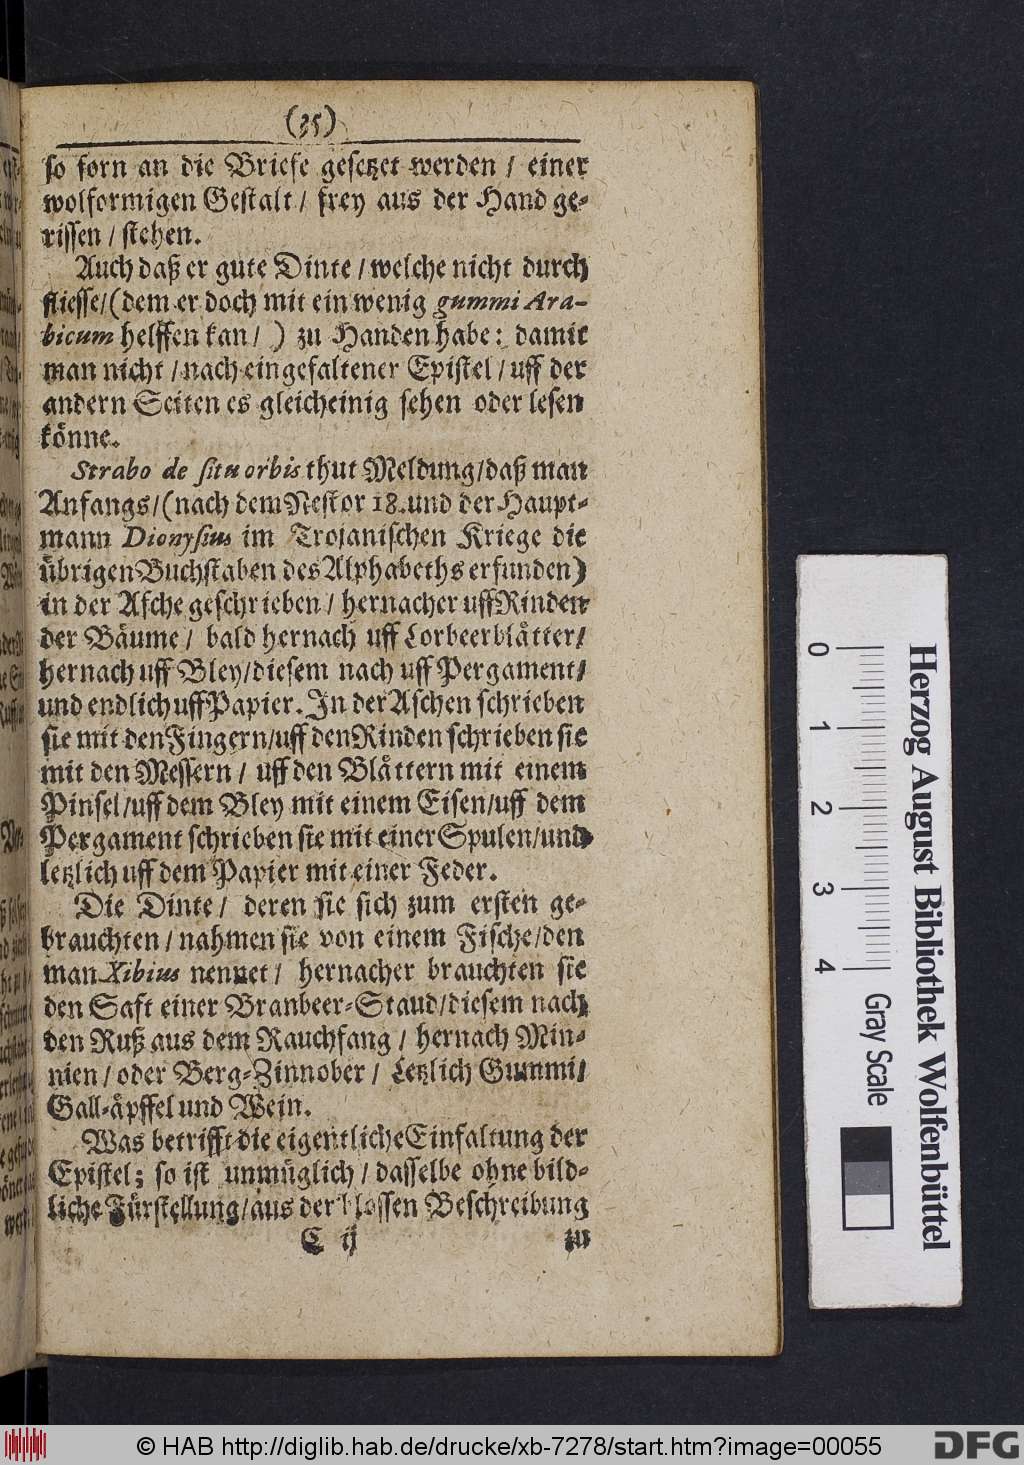 (35)
so forn an die Briefe gesetzet werden / einer
wolformigen Gestalt / frey aus der Hand ge-
rissen / stehen.
Auch daß er gute Dinte / welche nicht durch
fliesse/ (dem er doch mit ein wenig gummi Ara-
bicum helffen kan / ) zu Handen habe: damit
man nicht / nach eingefaltener Epistel / uff der
andern Seiten es gleicheinig sehen oder lesen
könne.
Strabo de situ orbis thut Meldung/ daß man
Anfangs/ (nach dem Nestor 18. und der Haupt-
mann Dionysius im Trojanischen Kriege die
übrigen Buchstaben des Alphabeths erfunden)
in der Asche geschrieben / hernacher uff Rinden
der Bäume / bald hernach uff Lorbeerblätter/
hernach uff Bley/ diesem nach uff Pergament/
und endlich uff Papier. In der Aschen schrieben
sie mit den Fingern/ uff den Rinden schrieben sie
mit den Messern / uff den Blättern mit einem
Pinsel/ uff dem Bley mit einem Eisen/ uff dem
Pergament schrieben sie mit einer Spulen/ und
letzlich uff dem Papier mit einer Feder.
Die Dinte / deren sie sich zum ersten ge-
brauchten / nahmen sie von einem Fische/ den
man Xibius nennet / hernacher brauchten sie
den Saft einer Branbeer-Staud/ diesem nach
den Ruß aus dem Rauchfang / hernach Min-
nien / oder Berg-Zinnober / Letzlich Gummi/
Gall-äpffel und Wein.
Was betrifft die eigentliche Einfaltung der
Epistel; so ist unmüglich / dasselbe ohne bild-
liche Fürstellung/ aus der blossen Beschreibung
C ij zu
0 1 2 3 4
Gray Scale
Herzog August Bibliothek Wolfenbüttel
© HAB http://diglib.hab.de/drucke/xb-7278/start.htm?image=00055
DFG